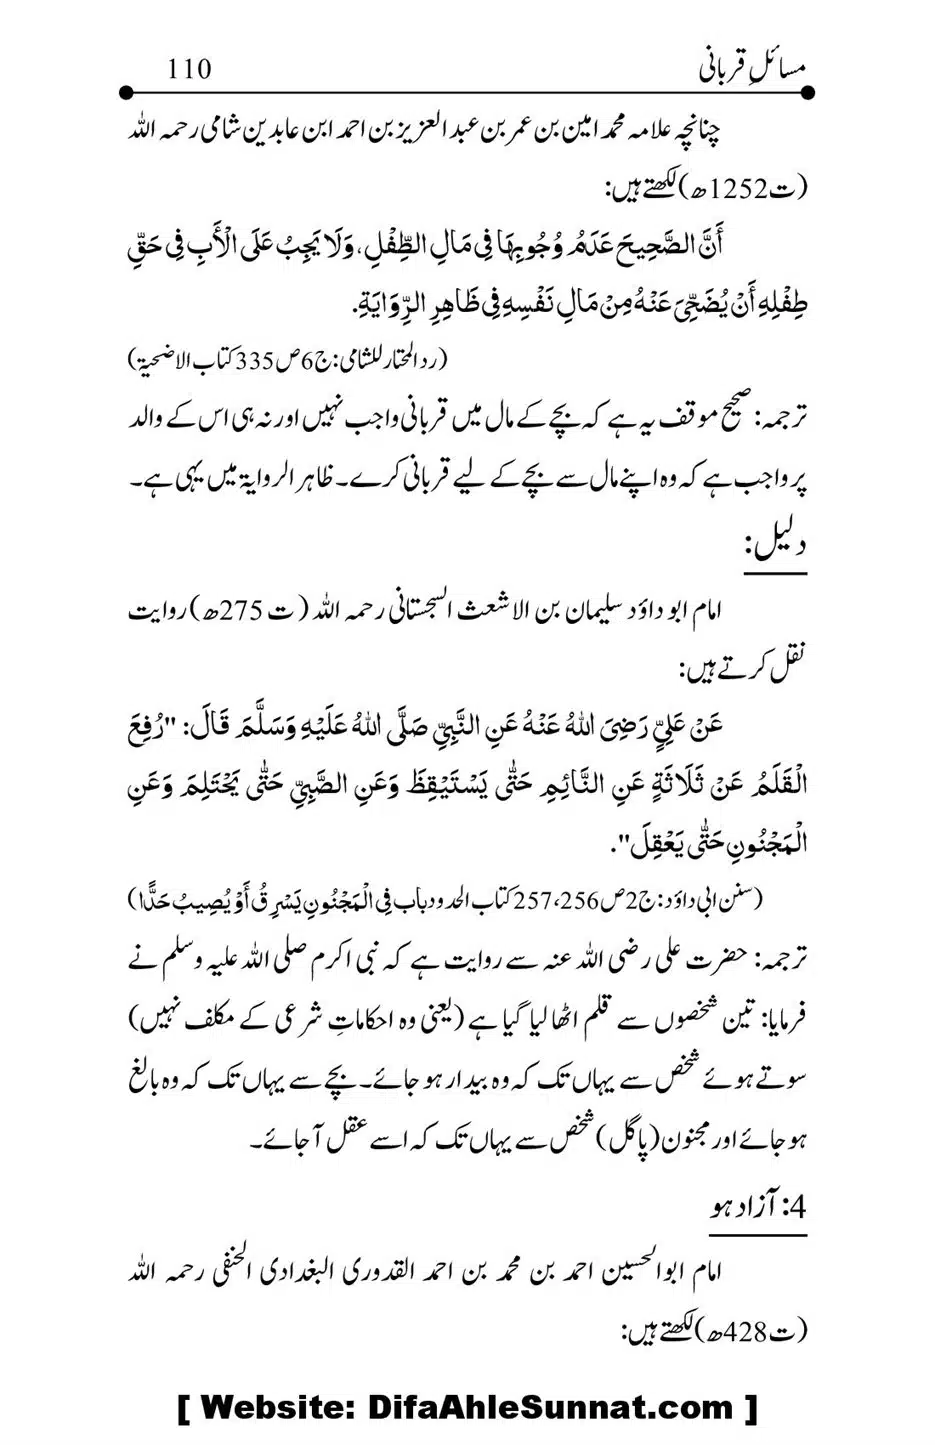 مسائلِ قربانی 110
چنانچہ علامہ محمد امین بن عمر بن عبد العزیز بن احمد ابن عابدین شامی رحمہ اللہ
(ت1252ھ) لکھتے ہیں:
أَنَّ الصَّحِيحَ عَدَمُ وُجُوبِهَا فِي مَالِ الطِّفْلِ، وَلَا يَجِبُ عَلَى الْأَبِ فِي حَقِّ
طِفْلِهِ أَنْ يُضَحِّيَ عَنْهُ مِنْ مَالِ نَفْسِهِ فِي ظَاهِرِ الرِّوَايَةِ.
(رد المحتار للشامی: ج6ص335 کتاب الاضحیۃ)
ترجمہ: صحیح موقف یہ ہے کہ بچے کے مال میں قربانی واجب نہیں اور نہ ہی اس کے والد
پر واجب ہے کہ وہ اپنے مال سے بچے کے لیے قربانی کرے۔ ظاہر الروایۃ میں یہی ہے۔
دلیل:
امام ابو داؤد سلیمان بن الاشعث السجستانی رحمہ اللہ (ت 275ھ) روایت
نقل کرتے ہیں:
عَنْ عَلِيٍّ رَضِيَ اللهُ عَنْهُ عَنِ النَّبِيِّ صَلَّى اللهُ عَلَيْهِ وَسَلَّمَ قَالَ: "رُفِعَ
الْقَلَمُ عَنْ ثَلَاثَةٍ عَنِ النَّائِمِ حَتّٰى يَسْتَيْقِظَ وَعَنِ الصَّبِيِّ حَتّٰى يَحْتَلِمَ وَعَنِ
الْمَجْنُونِ حَتّٰى يَعْقِلَ".
(سنن ابی داؤد: ج2ص256،257 کتاب الحدود باب فِي الْمَجْنُونِ يَسْرِقُ أَوْ يُصِيبُ حَدًّا)
ترجمہ: حضرت علی رضی اللہ عنہ سے روایت ہے کہ نبی اکرم صلی اللہ علیہ وسلم نے
فرمایا: تین شخصوں سے قلم اٹھا لیا گیا ہے (یعنی وہ احکاماتِ شرعی کے مکلف نہیں)
سوتے ہوئے شخص سے یہاں تک کہ وہ بیدار ہو جائے۔ بچے سے یہاں تک کہ وہ بالغ
ہو جائے اور مجنون (پاگل) شخص سے یہاں تک کہ اسے عقل آ جائے۔
4: آزاد ہو
امام ابو الحسین احمد بن محمد بن احمد القدوری البغدادی الحنفی رحمہ اللہ
(ت428ھ) لکھتے ہیں:
[ Website: DifaAhleSunnat.com ]